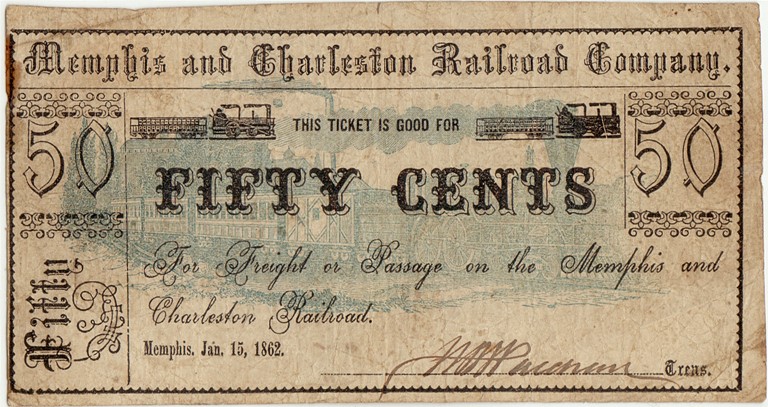 Memphis and Charleston Railroad Company.
50
THIS TICKET IS GOOD FOR
50
FIFTY CENTS
For Freight or Passage on the Memphis and
Charleston Railroad.
Fifty
Memphis. Jan. 15, 1862.
Treas.